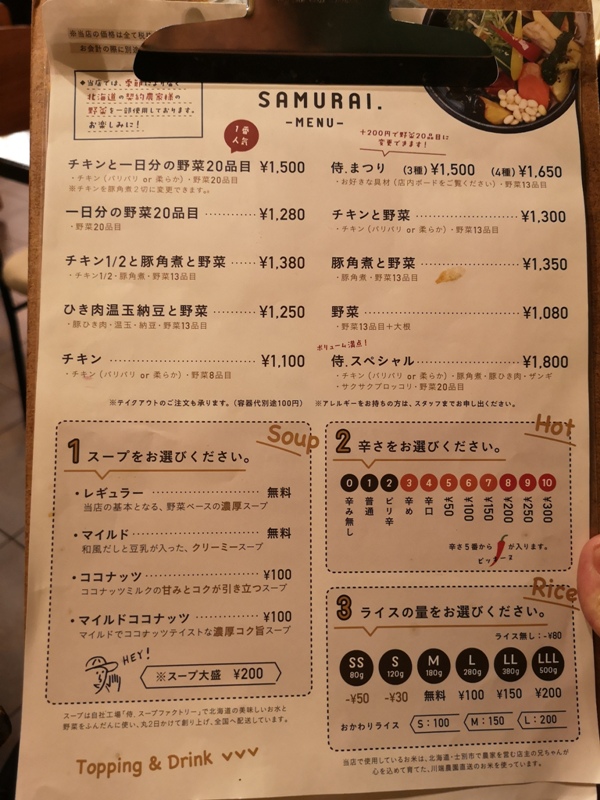 ※当店の価格は全て税
お会計の際に別途
◆当店では、季節により
北海道の契約農家様の
野菜を一部使用しております。
お楽しみに！
SAMURAI.
-MENU-
1番
人気
チキンと一日分の野菜20品目 ¥1,500
・チキン（パリパリ or 柔らか）・野菜20品目
※チキンを豚角煮2切に変更できます。
一日分の野菜20品目 ¥1,280
・野菜20品目
チキン1/2と豚角煮と野菜 ¥1,380
・チキン1/2・豚角煮・野菜13品目
ひき肉温玉納豆と野菜 ¥1,250
・豚ひき肉・温玉・納豆・野菜13品目
チキン ¥1,100
・チキン（パリパリ or 柔らか）・野菜8品目
+200円で野菜20品目に
変更できます！
侍.まつり （3種）¥1,500 （4種）¥1,650
・お好きな具材（店内ボードをご覧ください）・野菜13品目
チキンと野菜 ¥1,300
・チキン（パリパリ or 柔らか）・野菜13品目
豚角煮と野菜 ¥1,350
・豚角煮・野菜13品目
野菜 ¥1,080
・野菜13品目＋大根
ボリューム満点！
侍.スペシャル ¥1,800
・チキン（パリパリ or 柔らか）・豚角煮・豚ひき肉・ザンギ
・サクサクブロッコリ・野菜20品目
※テイクアウトのご注文も承ります。（容器代別途100円） ※アレルギーをお持ちの方は、スタッフまでお申し出ください。
Soup
1 スープをお選びください。
・レギュラー 無料
当店の基本となる、野菜ベースの濃厚スープ
・マイルド 無料
和風だしと豆乳が入った、クリーミースープ
・ココナッツ ¥100
ココナッツミルクの甘みとコクが引き立つスープ
・マイルドココナッツ ¥100
マイルドでココナッツテイストな濃厚コク旨スープ
HEY!
※スープ大盛 ¥200
スープは自社工場「侍.スープファクトリー」で北海道の美味しいお水と
野菜をふんだんに使い、丸2日かけて創り上げ、全国へ配送しています。
Topping & Drink
Hot
2 辛さをお選びください。
0 1 2 3 4 5 6 7 8 9 10
辛み無し 普通 ピリ辛 辛め 辛口 ¥50 ¥100 ¥150 ¥200 ¥250 ¥300
辛さ5番から が入ります。
ピッキーヌ
Rice
3 ライスの量をお選びください。
ライス無し：-¥80
SS 80g S 120g M 180g L 280g LL 380g LLL 500g
-¥50 -¥30 無料 ¥100 ¥150 ¥200
おかわりライス S：100 M：150 L：200
当店で使用しているお米は、北海道・士別市で農家を営む店主の兄ちゃんが
心を込めて育てた、川味農園直送のお米を使っています。